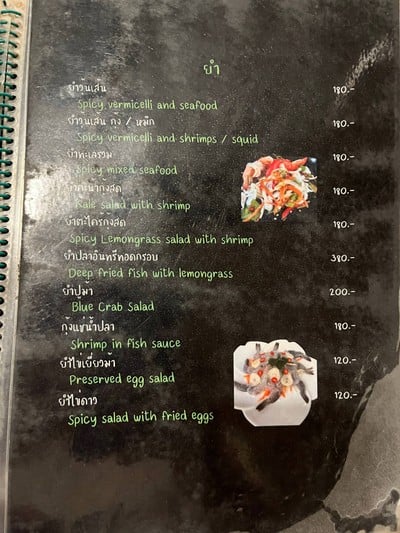 ยำ
ยำวุ้นเส้น 180.-
Spicy vermicelli and seafood
ยำวุ้นเส้น กุ้ง / หมึก 180.-
Spicy vermicelli and shrimps / squid
ยำทะเลรวม 180.-
Spicy mixed seafood
ยำคะน้ากุ้งสด 180.-
Kale salad with shrimp
ยำตะไคร้กุ้งสด 180.-
Spicy Lemongrass salad with shrimp
ยำปลาอินทรีทอดกรอบ 380.-
Deep fried fish with lemongrass
ยำปูม้า 200.-
Blue Crab Salad
กุ้งแช่น้ำปลา 180.-
Shrimp in fish sauce
ยำไข่เยี่ยวม้า 120.-
Preserved egg salad
ยำไข่ดาว 120.-
Spicy salad with fried eggs